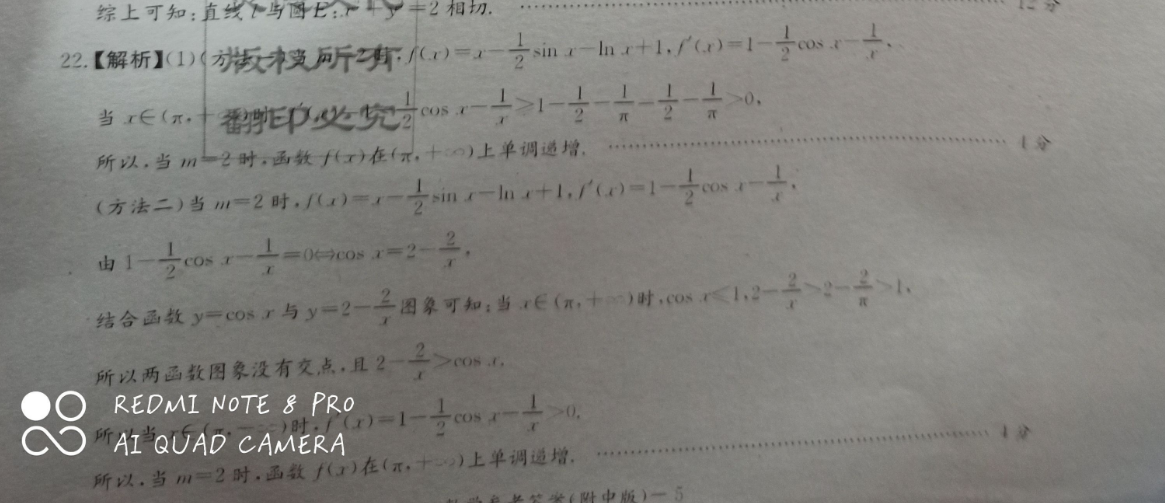 综上可知:直线l与圆E:x²+y²=2相切. 12分
22.【解析】(1)(方法一)当m=2时,f(x)=x-1/2 sin x-ln x+1,f′(x)=1-1/2 cos x-1/x,
版权所有
当x∈(π,+∞)时,f′(x)=1-1/2 cos x-1/x≥1-1/2-1/π=1/2-1/π>0,
翻印必究
所以,当m=2时,函数f(x)在(π,+∞)上单调递增. 4分
(方法二)当m=2时,f(x)=x-1/2 sin x-ln x+1,f′(x)=1-1/2 cos x-1/x,
由1-1/2 cos x-1/x=0⇔cos x=2-2/x,
结合函数y=cos x与y=2-2/x图象可知:当x∈(π,+∞)时,cos x≤1,2-2/x>2-2/π>1,
所以两函数图象没有交点,且2-2/x>cos x.
REDMI NOTE 8 PRO
所以当x∈(π,+∞)时,f′(x)=1-1/2 cos x-1/x>0,
AI QUAD CAMERA
所以,当m=2时,函数f(x)在(π,+∞)上单调递增. 4分
数学参考答案(附中版)-5